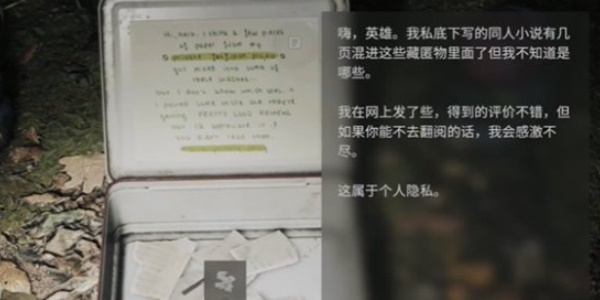 Hi, hero. I think a few pieces
of paper from my
private fanfiction project
got mixed into some of
these
but I don't know which ones. I
嗨，英雄。我私底下写的同人小说有几
页混进这些藏匿物里面了但我不知道是
哪些。
我在网上发了些，得到的评价不错，但
如果你能不去翻阅的话，我会感激不
尽。
这属于个人隐私。